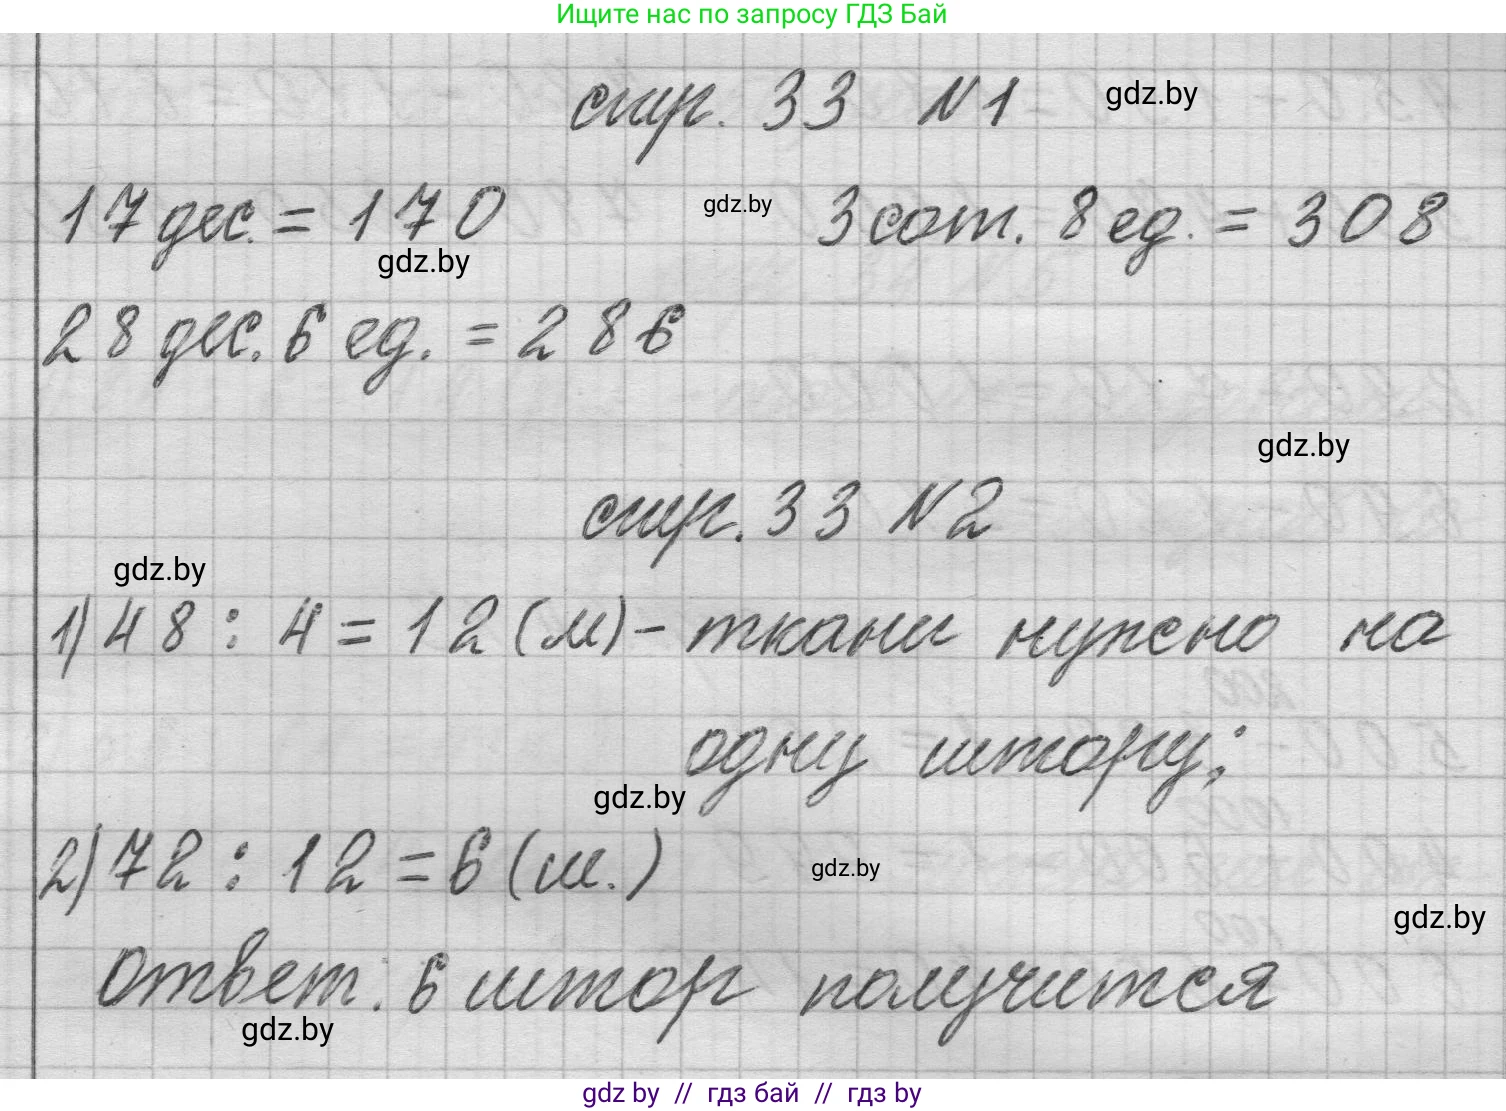 Ищите нас по запросу ГДЗ Бай
стр. 33 N1 gdz.by
17 дес. = 170 gdz.by 3 сот. 8 ед. = 308
gdz.by
28 дес. 6 ед. = 286
gdz.by
стр. 33 N2
gdz.by
1) 48 : 4 = 12 (м) - ткани нужно на
одну штору;
gdz.by
2) 72 : 12 = 6 (ш.) gdz.by
gdz.by
ответ: 6 штор получится
gdz.by
gdz by // гдз бай // гдз by